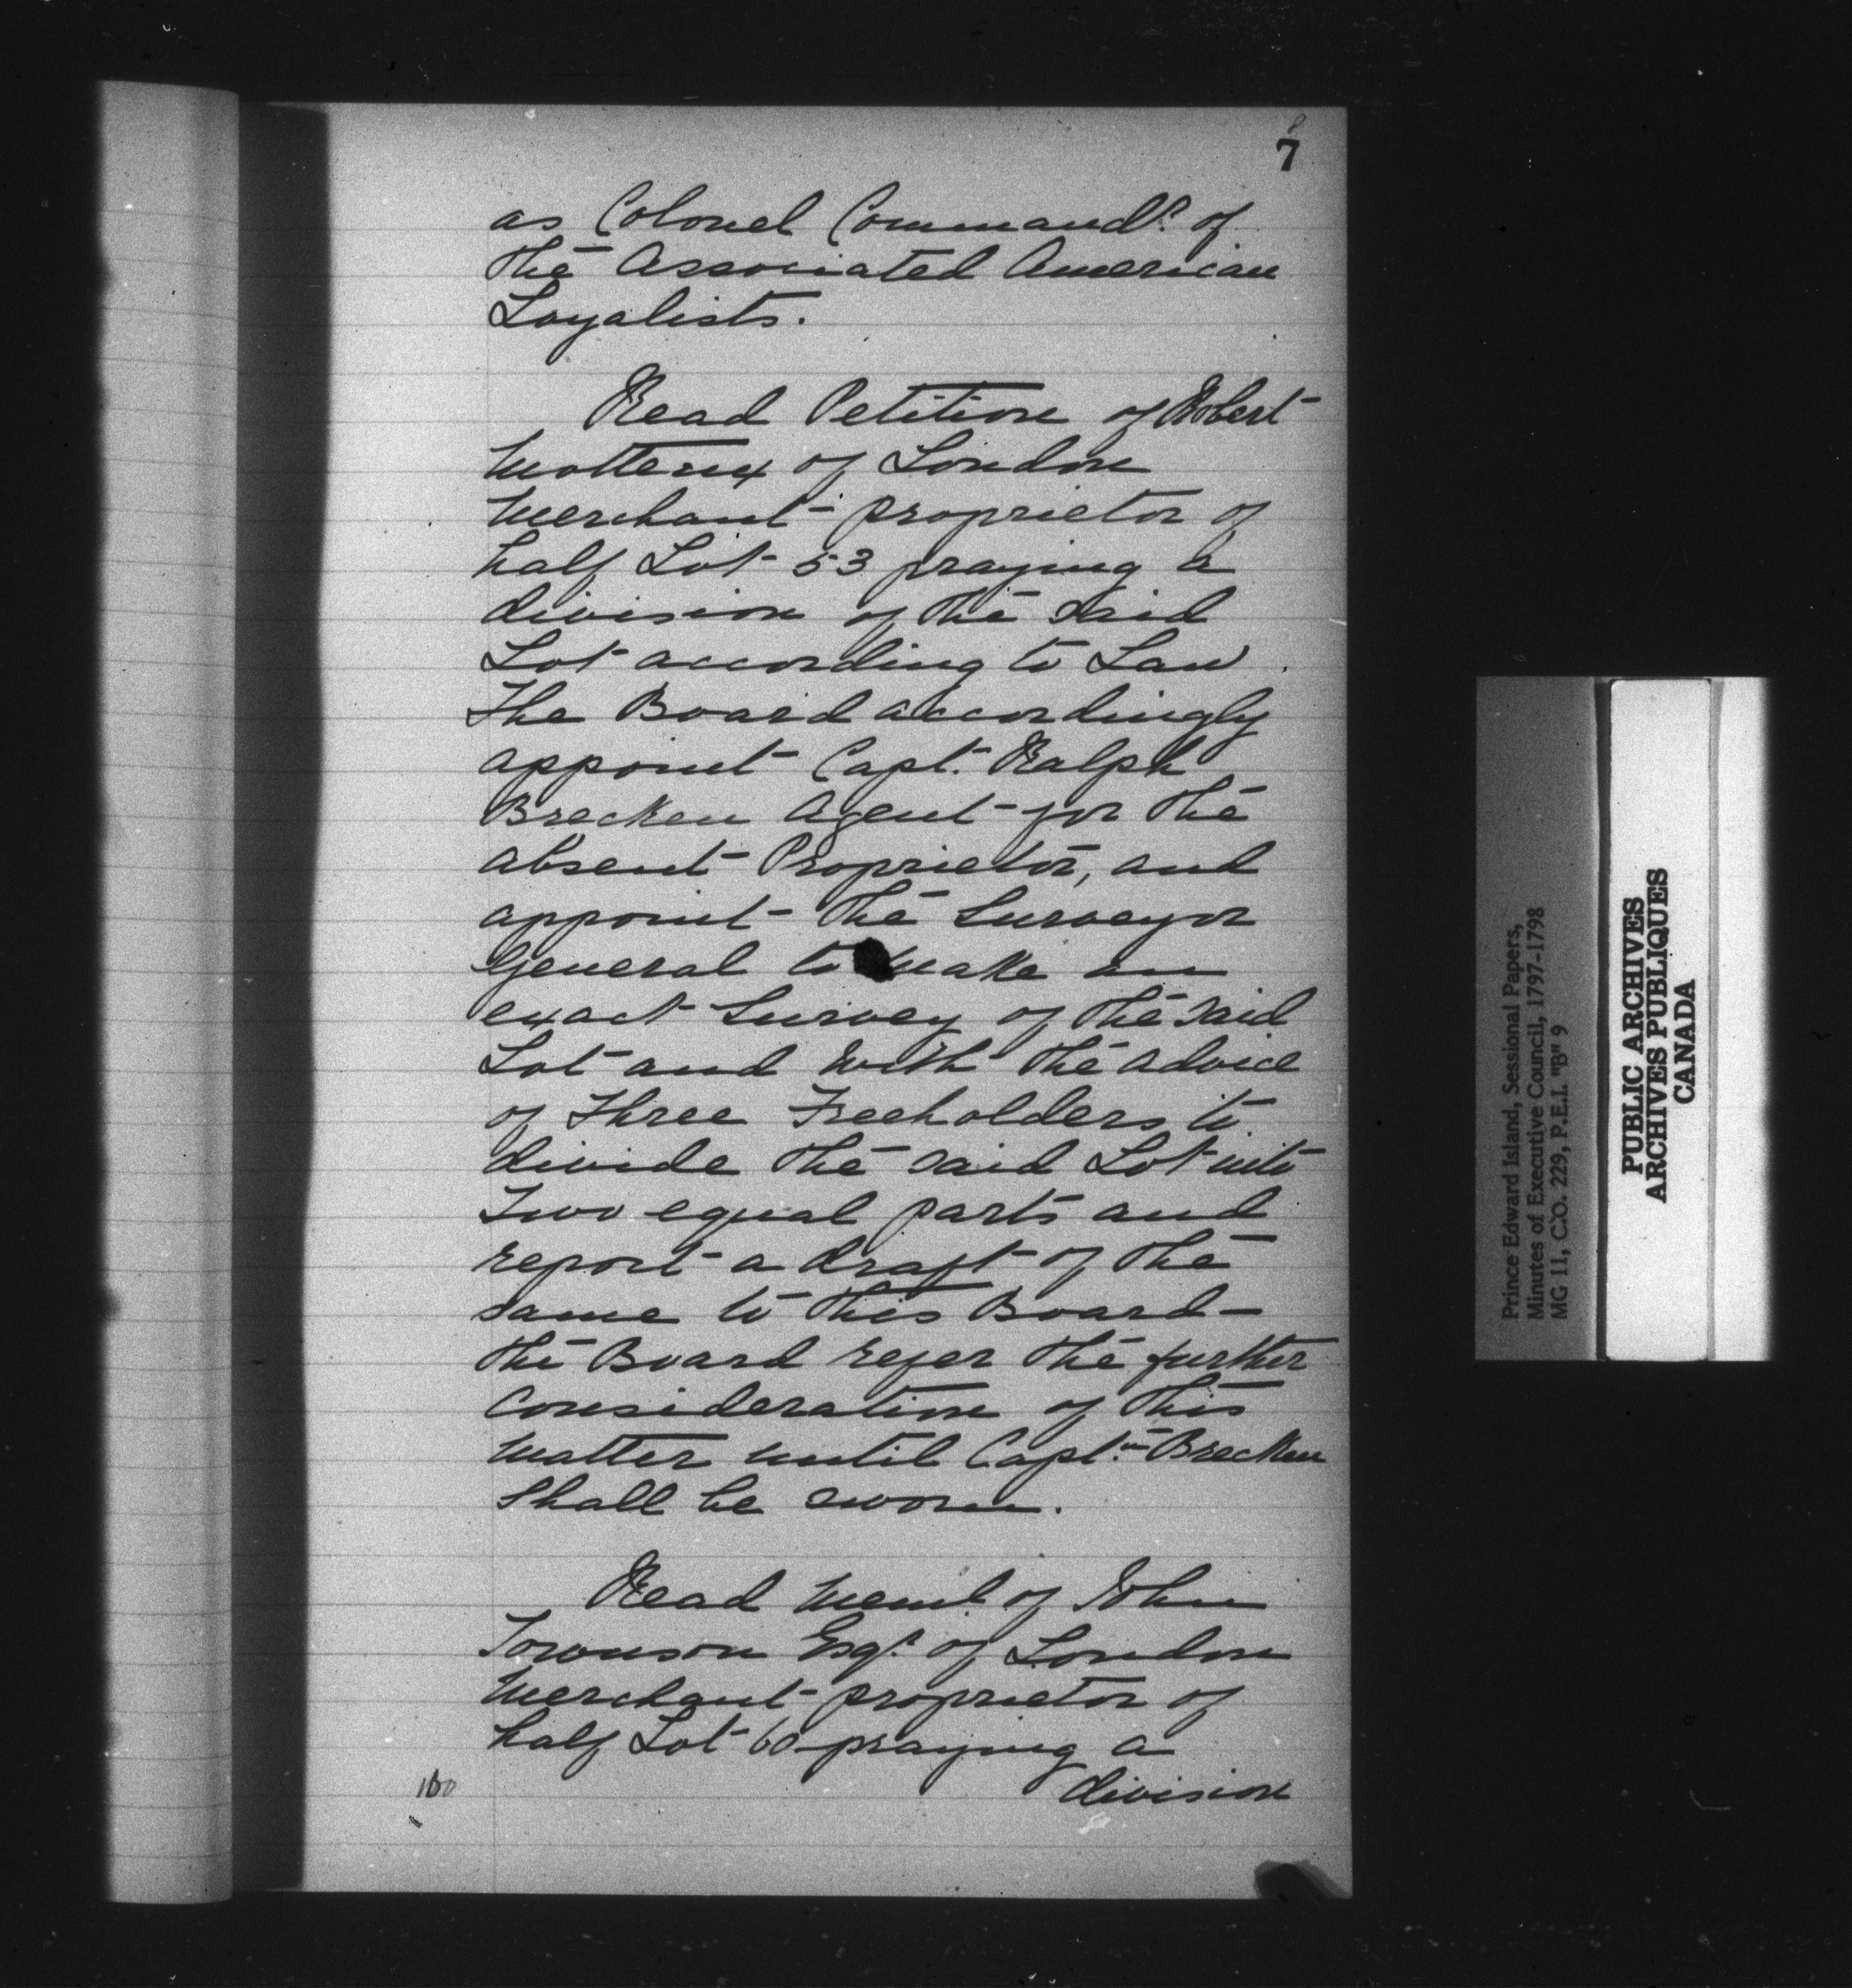 7
as Colonel Commandt. of
the Associated American
Loyalists.
Read Petition of Robert
Motteux of London
Merchant proprietor of
half Lot 53 praying a
division of the said
Lot according to Law.
The Board accordingly
appoint Capt. Ralph
Brecken Agent for the
absent Proprietor, and
appoint the Surveyor
General to make an
exact Survey of the said
Lot and with the advice
of Three Freeholders to
divide the said Lot into
Two equal parts and
report a draft of the
same to this Board—
the Board refer the further
Consideration of this
matter until Captn. Brecken
Shall be sworn.
Read Meml. of John
Townson Esqr. of London
Merchant proprietor of
half Lot 60 praying a
division
160
Prince Edward Island, Sessional Papers,
Minutes of Executive Council, 1797-1798
MG 11, C.O. 229, P.E.I. "B" 9
PUBLIC ARCHIVES
ARCHIVES PUBLIQUES
CANADA